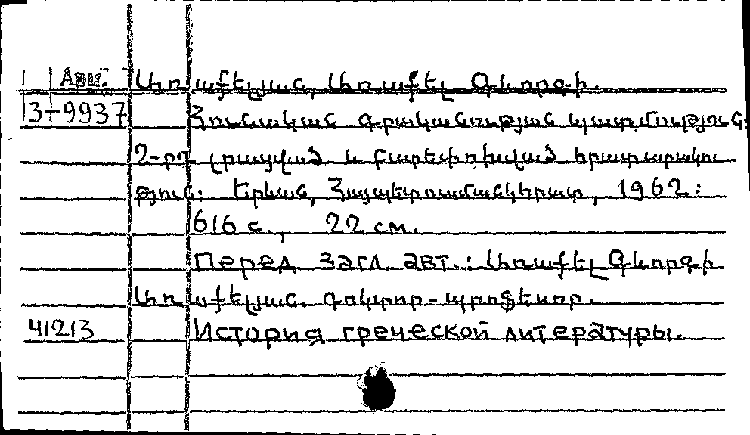 Арм. Առաքելյան, Առաքել Գևորգի.
3-9937 Հունական գրականության պատմություն:
2-րդ լրացված և բարեփոխված հրատարակու
թյուն: Երևան, Հայպետուսմանկհրատ, 1962:
616 с., 22 см.
Перед загл. авт.: Առաքել Գևորգի
Առաքելյան. դոկտոր-պրոֆեսոր.
41213 История греческой литературы.